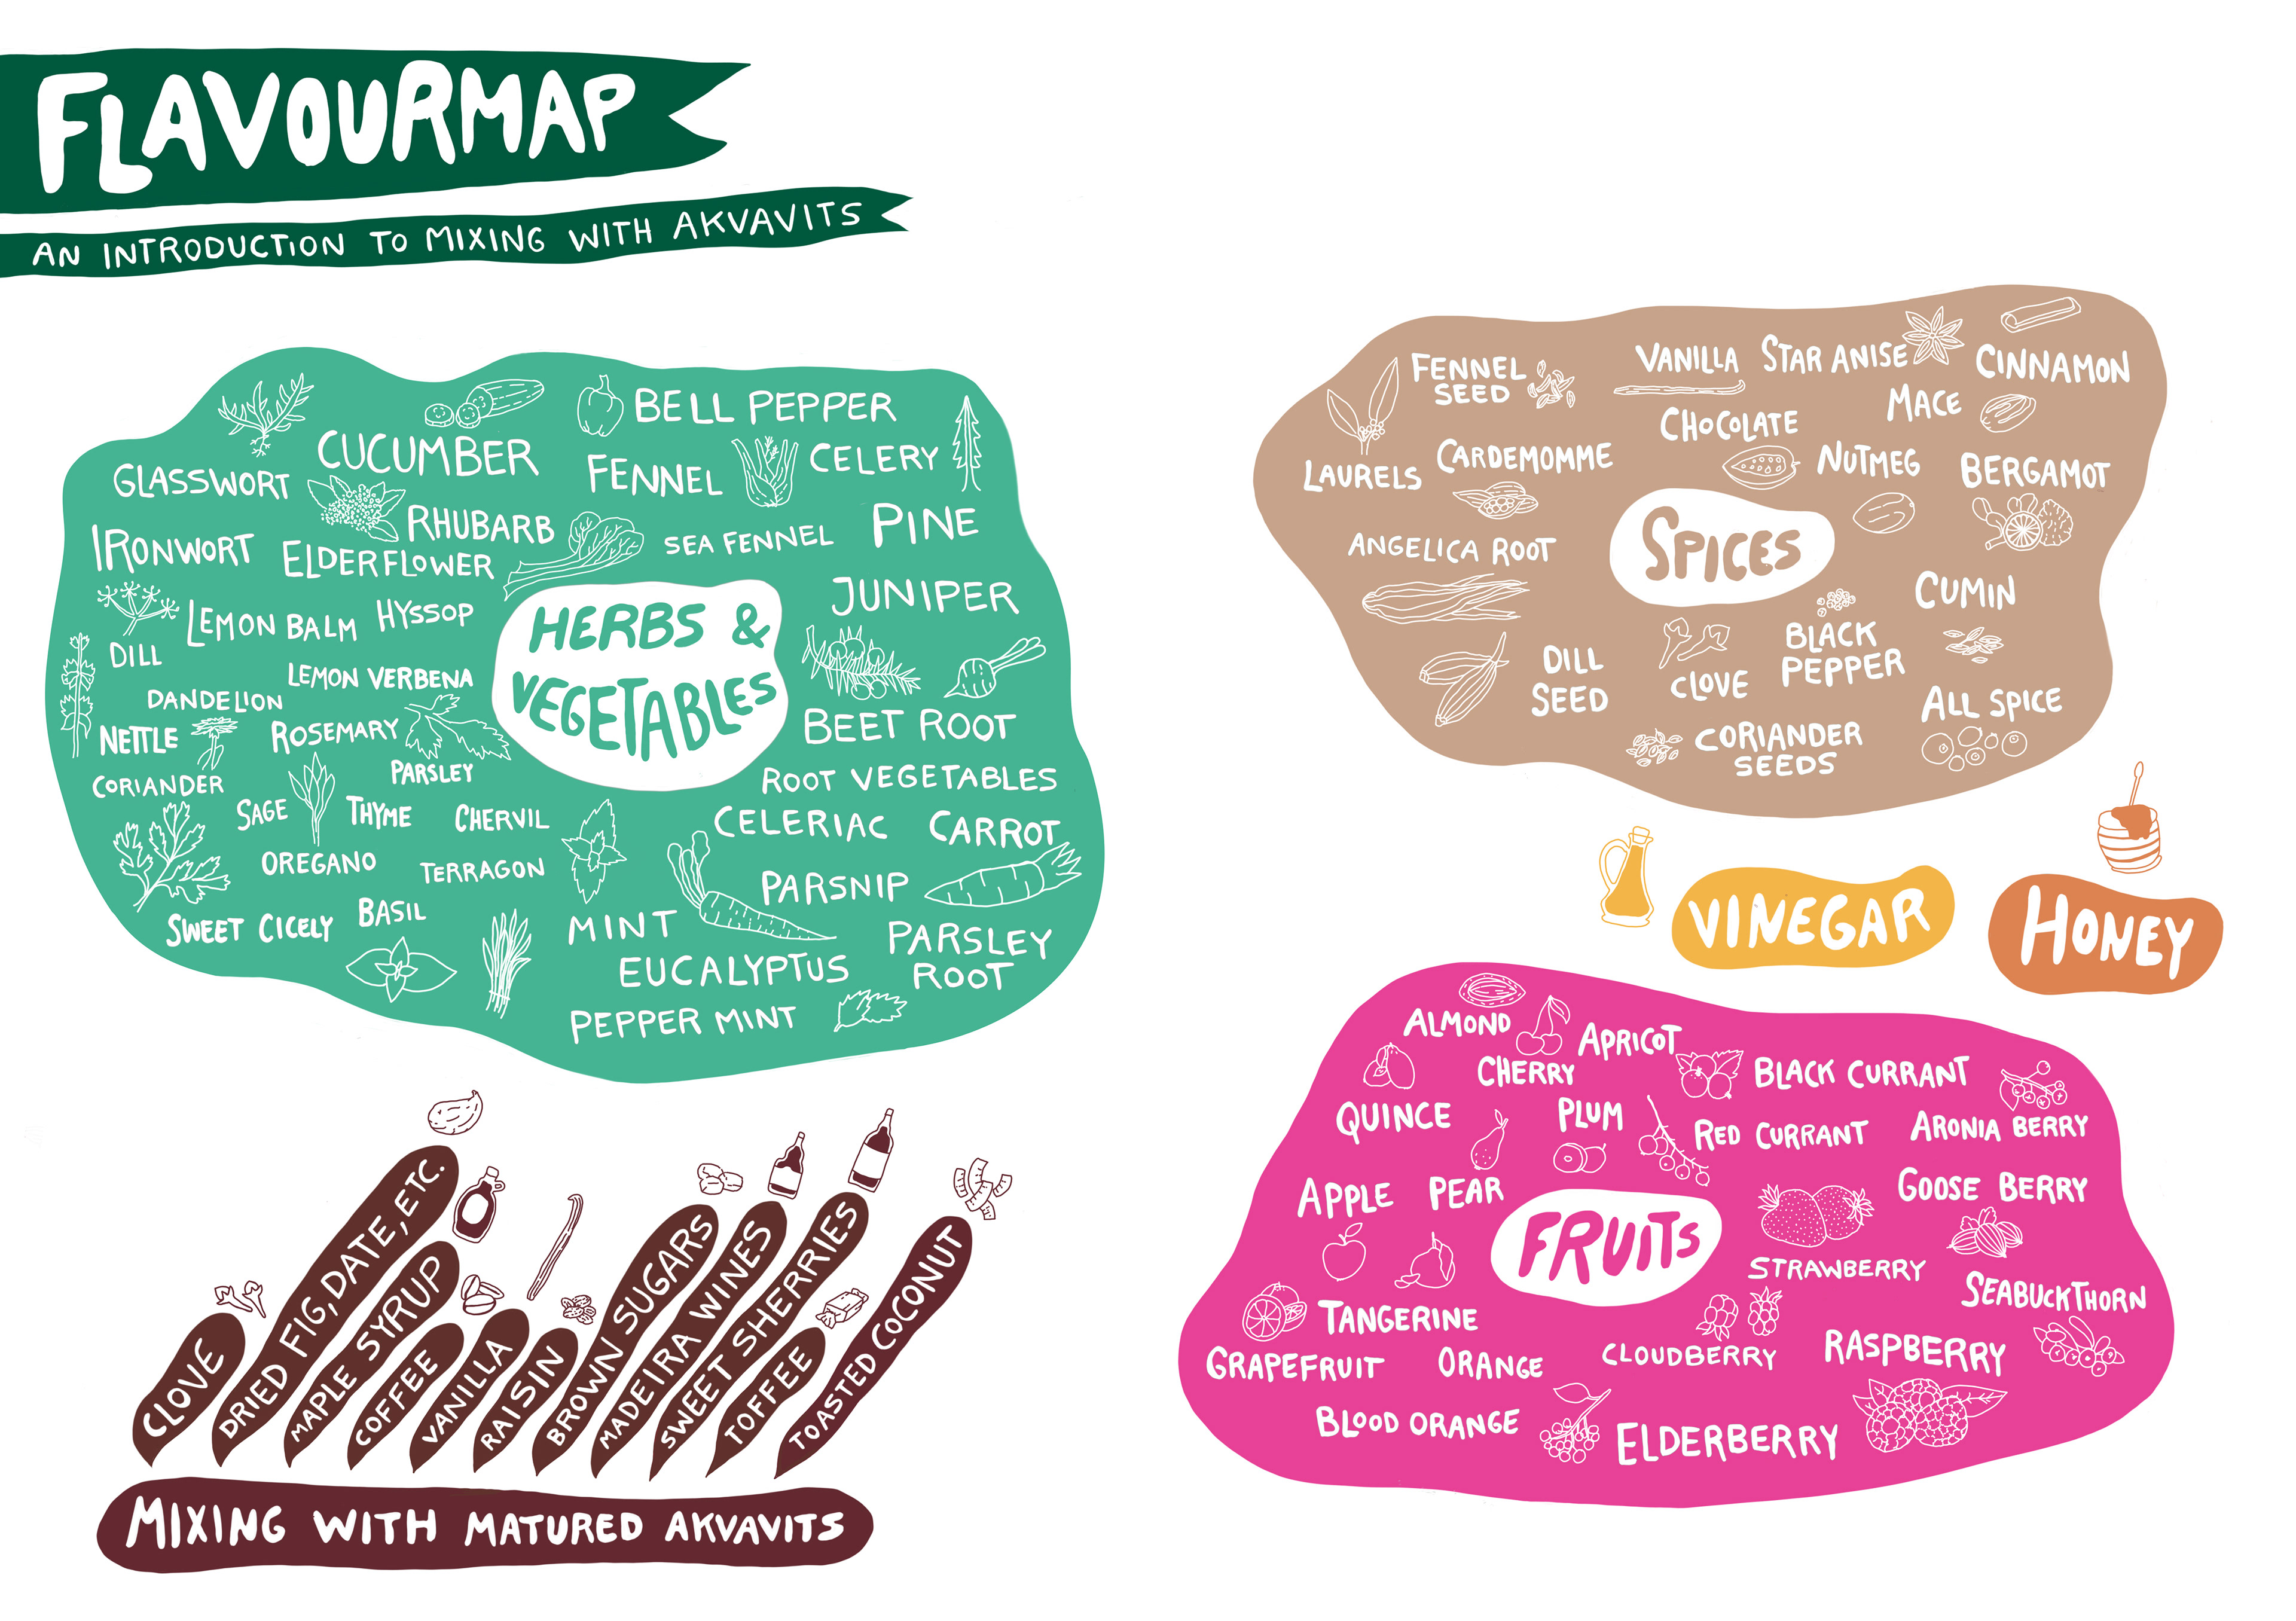 FLAVOURMAP
AN INTRODUCTION TO MIXING WITH AKVAVITS
BELL PEPPER
CUCUMBER
FENNEL
CELERY
GLASSWORT
RHUBARB
SEA FENNEL
PINE
IRONWORT
ELDERFLOWER
JUNIPER
LEMON BALM
HYSSOP
HERBS &
VEGETABLES
DILL
LEMON VERBENA
DANDELION
NETTLE
ROSEMARY
BEET ROOT
PARSLEY
CORIANDER
ROOT VEGETABLES
SAGE
THYME
CHERVIL
CELERIAC
CARROT
OREGANO
TERRAGON
PARSNIP
SWEET CICELY
BASIL
MINT
PARSLEY
ROOT
EUCALYPTUS
PEPPER MINT
FENNEL
SEED
VANILLA
STAR ANISE
CINNAMON
MACE
CHOCOLATE
LAURELS
CARDEMOMME
NUTMEG
BERGAMOT
ANGELICA ROOT
SPICES
CUMIN
DILL
SEED
CLOVE
BLACK
PEPPER
ALL SPICE
CORIANDER
SEEDS
VINEGAR
HONEY
ALMOND
CHERRY
APRICOT
BLACK CURRANT
QUINCE
PLUM
RED CURRANT
ARONIA BERRY
APPLE
PEAR
GOOSE BERRY
FRUITS
STRAWBERRY
SEABUCKTHORN
TANGERINE
GRAPEFRUIT
ORANGE
CLOUDBERRY
RASPBERRY
BLOOD ORANGE
ELDERBERRY
CLOVE
DRIED FIG, DATE, ETC.
MAPLE SYRUP
COFFEE
VANILLA
RAISIN
BROWN SUGARS
MADEIRA WINES
SWEET SHERRIES
TOFFEE
TOASTED COCONUT
MIXING WITH MATURED AKVAVITS